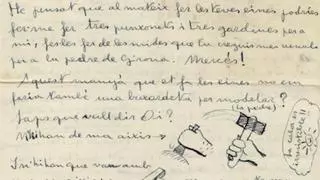 He pensat que al mateix fer les teves eines podries
fer-me fer tres punxons i tres gardines per a
mi, fesles fer de les mides que tu creguis mes usuals
per a la pedre de Girona. Merces!
Aquest manyà que et fa les eines no em
faria també una buixardeta per modelar?
(la pedra)
Saps que vull dir Oi?
N'hi han de mes aixis →
I n'hi han que van amb